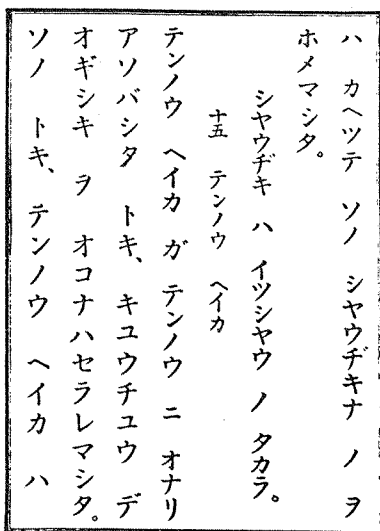 ハ カヘツテ ソノ シヤウヂキナ ノ ヲ
ホメマシタ。
シヤウヂキ ハ イツシヤウ ノ タカラ。
十五 テンノウ ヘイカ
テンノウ ヘイカ ガ テンノウ ニ オナリ
アソバシタ トキ、キユウチユウ デ
オギシキ ヲ オコナハセラレマシタ。
ソノ トキ、テンノウ ヘイカ ハ